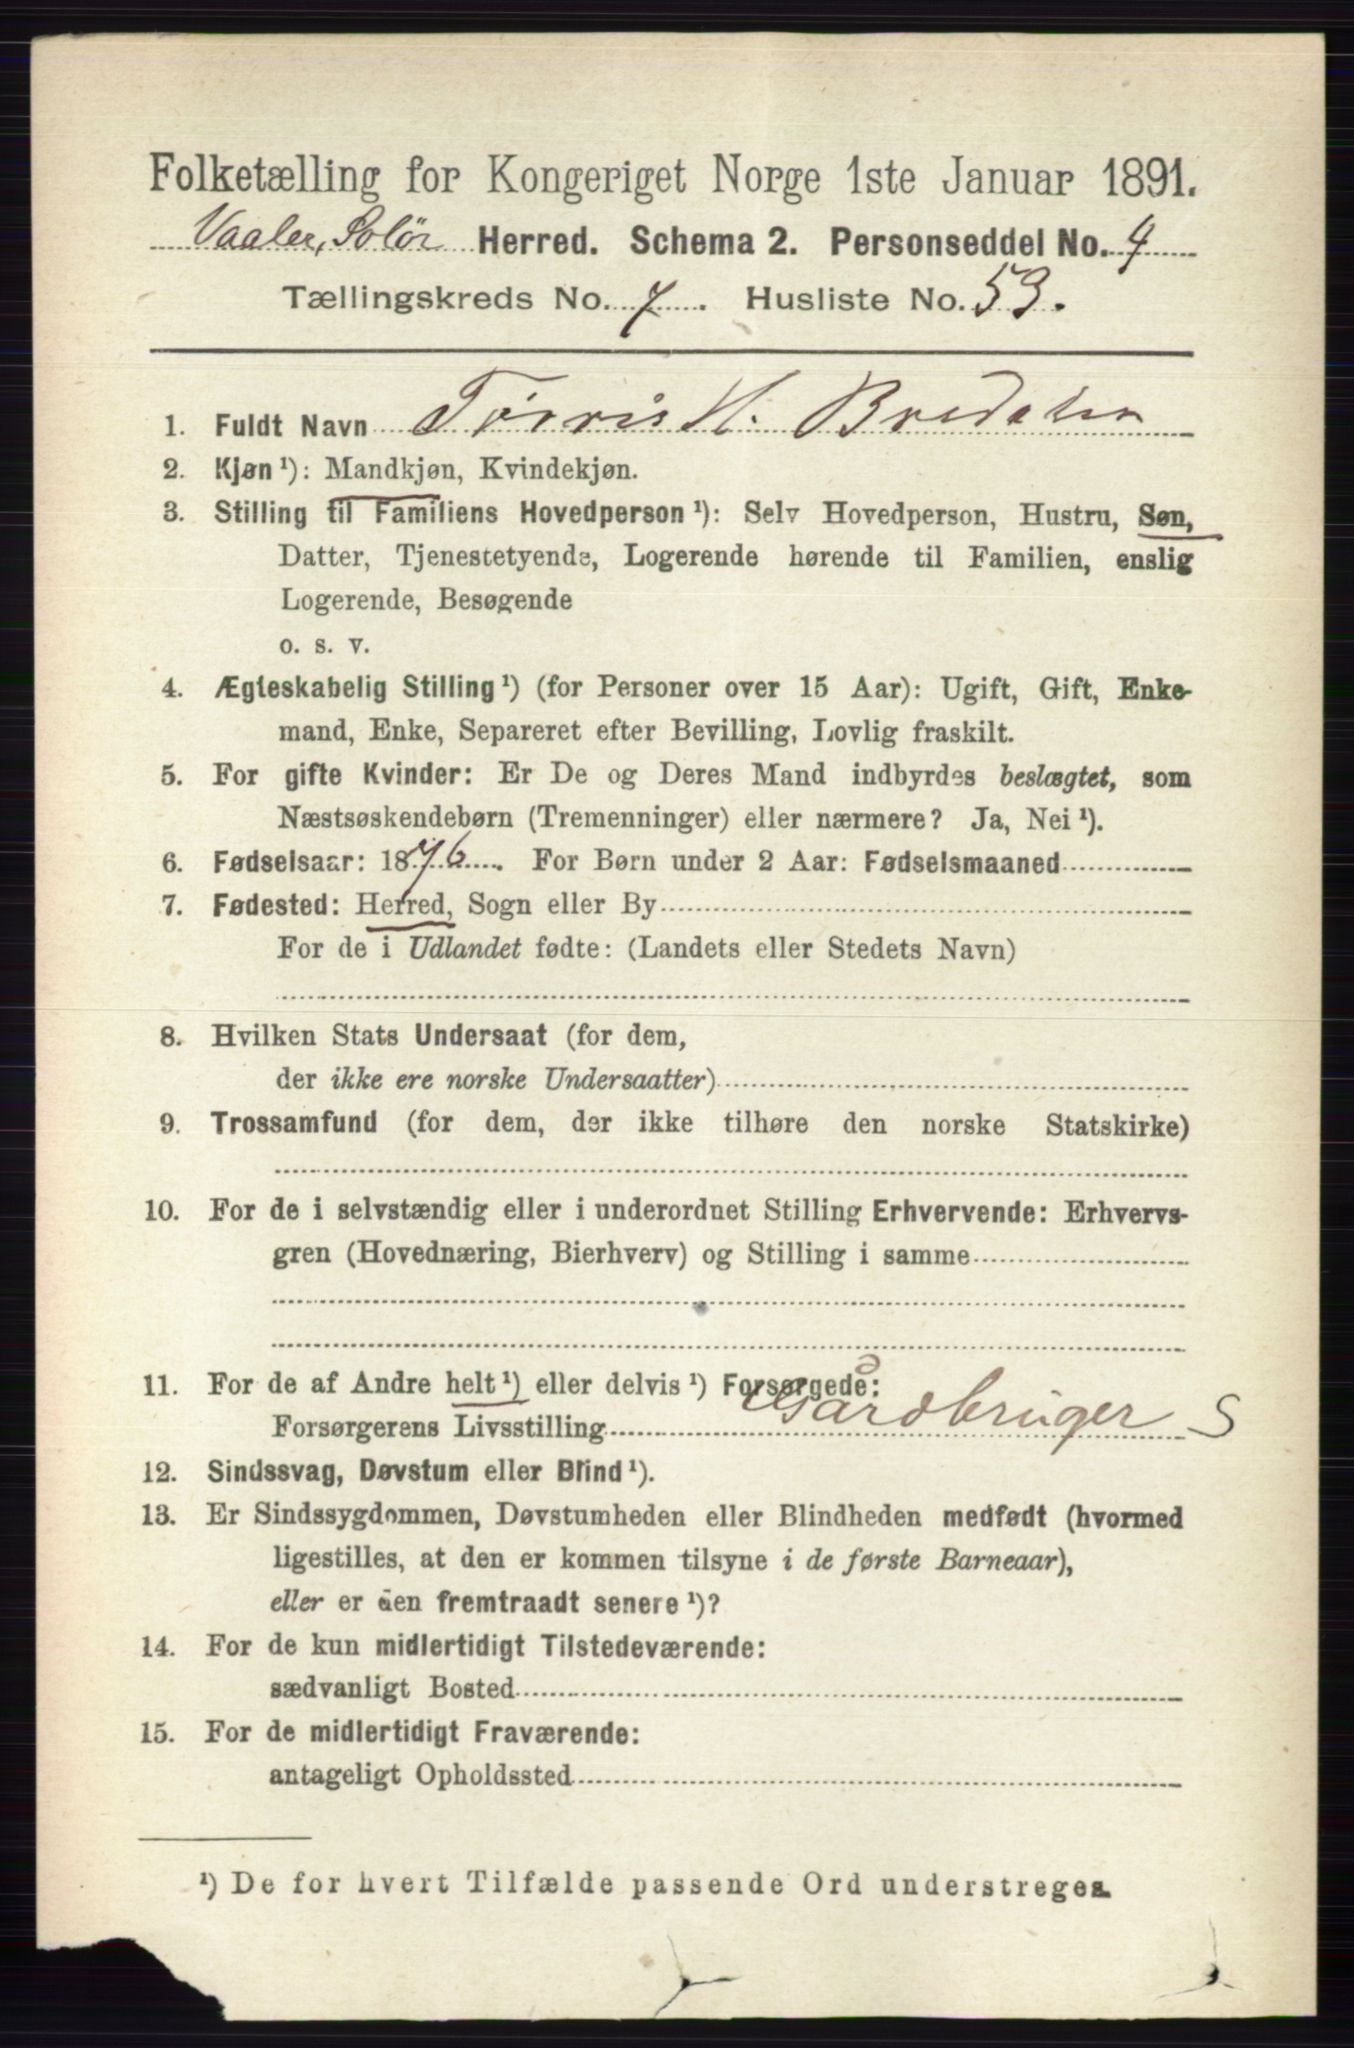 Folketælling for Kongeriget Norge 1ste Januar 1891.
Vaaler, Solør Herred. Schema 2. Personseddel No. 4
Tællingskreds No. 7. Husliste No. 53.
1. Fuldt Navn Tørris H. Bredalen
2. Kjøn¹): Mandkjøn, Kvindekjøn.
3. Stilling til Familiens Hovedperson¹): Selv Hovedperson, Hustru, Søn,
Datter, Tjenestetyende, Logerende hørende til Familien, enslig
Logerende, Besøgende
o. s. v.
4. Ægteskabelig Stilling¹) (for Personer over 15 Aar): Ugift, Gift, Enke-
mand, Enke, Separeret efter Bevilling, Lovlig fraskilt.
5. For gifte Kvinder: Er De og Deres Mand indbyrdes beslægtet, som
Næstsøskendebørn (Tremenninger) eller nærmere? Ja, Nei¹).
6. Fødselsaar: 1876. For Børn under 2 Aar: Fødselsmaaned
7. Fødested: Herred, Sogn eller By
For de i Udlandet fødte: (Landets eller Stedets Navn)
8. Hvilken Stats Undersaat (for dem,
der ikke ere norske Undersaatter)
9. Trossamfund (for dem, der ikke tilhøre den norske Statskirke)
10. For de i selvstændig eller i underordnet Stilling Erhvervende: Erhvervs-
gren (Hovednæring, Bierhverv) og Stilling i samme
11. For de af Andre helt¹) eller delvis¹) Forsørgede:
Forsørgerens Livsstilling Gårdbruger S
12. Sindssvag, Døvstum eller Blind¹).
13. Er Sindssygdommen, Døvstumheden eller Blindheden medfødt (hvormed
ligestilles, at den er kommen tilsyne i de første Barneaar),
eller er den fremtraadt senere¹)?
14. For de kun midlertidigt Tilstedeværende:
sædvanligt Bosted
15. For de midlertidigt Fraværende:
antageligt Opholdssted
¹) De for hvert Tilfælde passende Ord understreges.